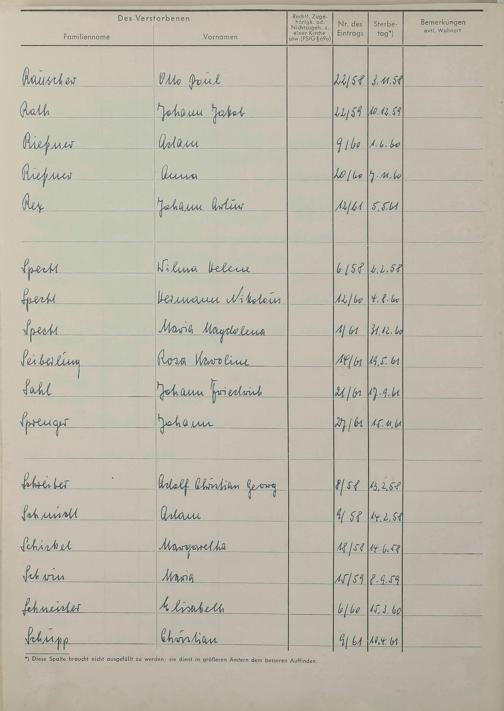 Des Verstorbenen
Familienname Vornamen
Rechtl. Zuge-
hörigk. od.
Nichtzugeh. z.
einer Kirche
Nr. des
Eintrags
Sterbe-
tag*)
Bemerkungen
evtl. Wohnort
Räuscher Otto Paul 22/58 3.11.58
Rath Johann Jakob 22/59 10.12.59
Rießner Adam 9/60 1.6.60
Rießner Anna 20/60 7.11.60
Rex Johann Artur 12/61 5.5.61
Specht Wilma Helene 6/58 2.2.58
Specht Hermann Nikolaus 12/60 4.8.60
Specht Maria Magdalena 1/61 31.12.60
Seiberling Rosa Karoline 14/61 19.5.61
Sahl Johann Friedrich 21/61 17.9.61
Sprenger Johann 27/61 15.11.61
Schreiber Adolf Christian Georg 8/58 13.2.58
Schmidt Adam 9/58 14.2.58
Schickel Margaretha 18/58 14.6.58
Schwin Maria 15/59 8.9.59
Schneider Elisabeth 6/60 15.3.60
Schupp Christian 9/61 10.4.61
*) Diese Spalte braucht nicht ausgefüllt zu werden; sie dient in größeren Ämtern dem besseren Auffinden.